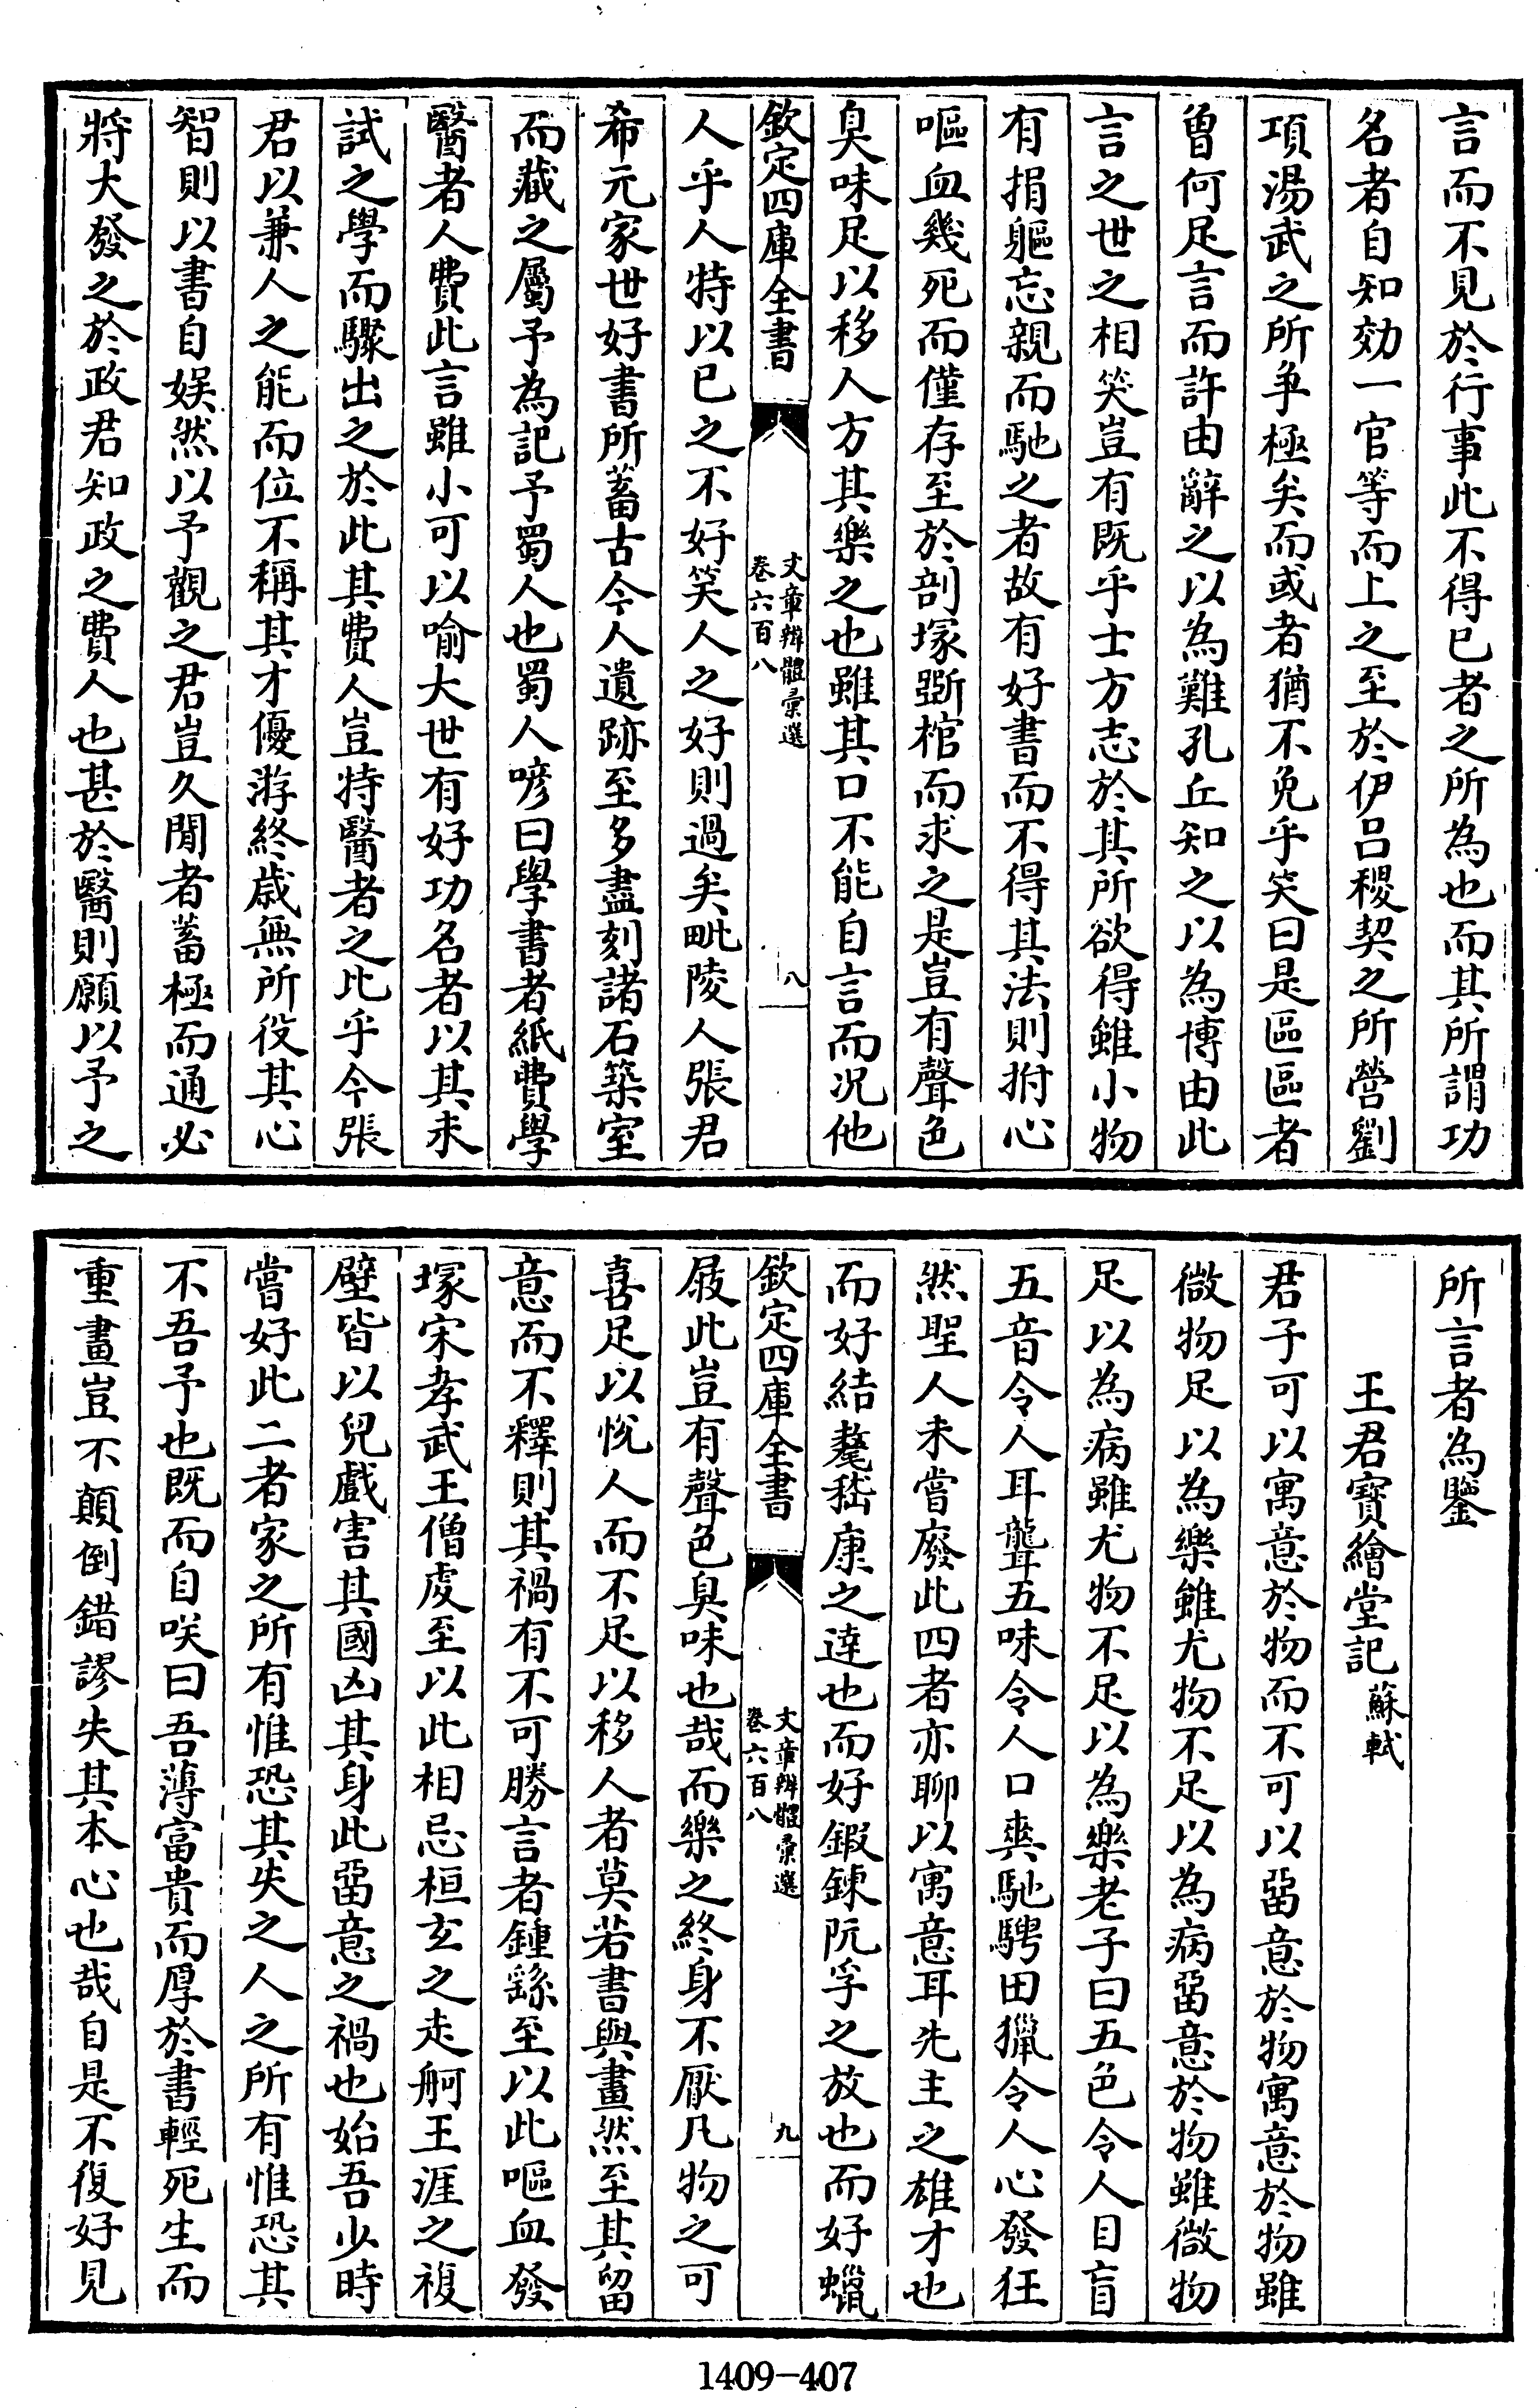 言而不見於行事此不得已者之所為也而其所謂功
名者自知効一官等而上之至於伊呂稷契之所營劉
項湯武之所争極矣而或者猶不免乎笑曰是區區者
曾何足言而許由辭之以為難孔丘知之以為博由此
言之世之相笑豈有既乎士方志於其所欲得雖小物
有捐軀忘親而馳之者故有好書而不得其法則拊心
嘔血幾死而僅存至於剖塚斲棺而求之是豈有聲色
臭味足以移人方其樂之也雖其口不能自言而况他
欽定四庫全書
文章辨體彚選
卷六百八
八
人乎人特以已之不好笑人之好則過矣毗陵人張君
希元家世好書所蓄古今人遺跡至多盡刻諸石築室
而藏之屬予為記予蜀人也蜀人諺曰學書者紙費學
醫者人費此言雖小可以喻大世有好功名者以其未
試之學而驟出之於此其費人豈特醫者之比乎今張
君以兼人之能而位不稱其才優游終歲無所役其心
智則以書自娱然以予觀之君豈久閒者蓄極而通必
將大發之於政君知政之費人也甚於醫則願以予之
所言者為鑒
王君寶繪堂記蘇軾
君子可以寓意於物而不可以㽞意於物寓意於物雖
微物足以為樂雖尤物不足以為病㽞意於物雖微物
足以為病雖尤物不足以為樂老子曰五色令人目盲
五音令人耳聾五味令人口爽馳騁田獵令人心發狂
然聖人未嘗廢此四者亦聊以寓意耳先主之雄才也
而好結髦嵇康之達也而好鍜鍊阮孚之放也而好蠟
屐此豈有聲色臭味也哉而樂之終身不厭凡物之可
欽定四庫全書
文章辨體彚選
卷六百八
九
喜足以悅人而不足以移人者莫若書與畫然至其留
意而不釋則其禍有不可勝言者鍾繇至以此嘔血發
塚宋孝武王僧虔至以此相忌桓玄之走舸王涯之複
壁皆以兒戲害其國凶其身此㽞意之禍也始吾少時
嘗好此二者家之所有惟恐其失之人之所有惟恐其
不吾予也既而自咲曰吾薄富貴而厚於書輕死生而
重畫豈不顛倒錯謬失其本心也哉自是不復好見
1409-407